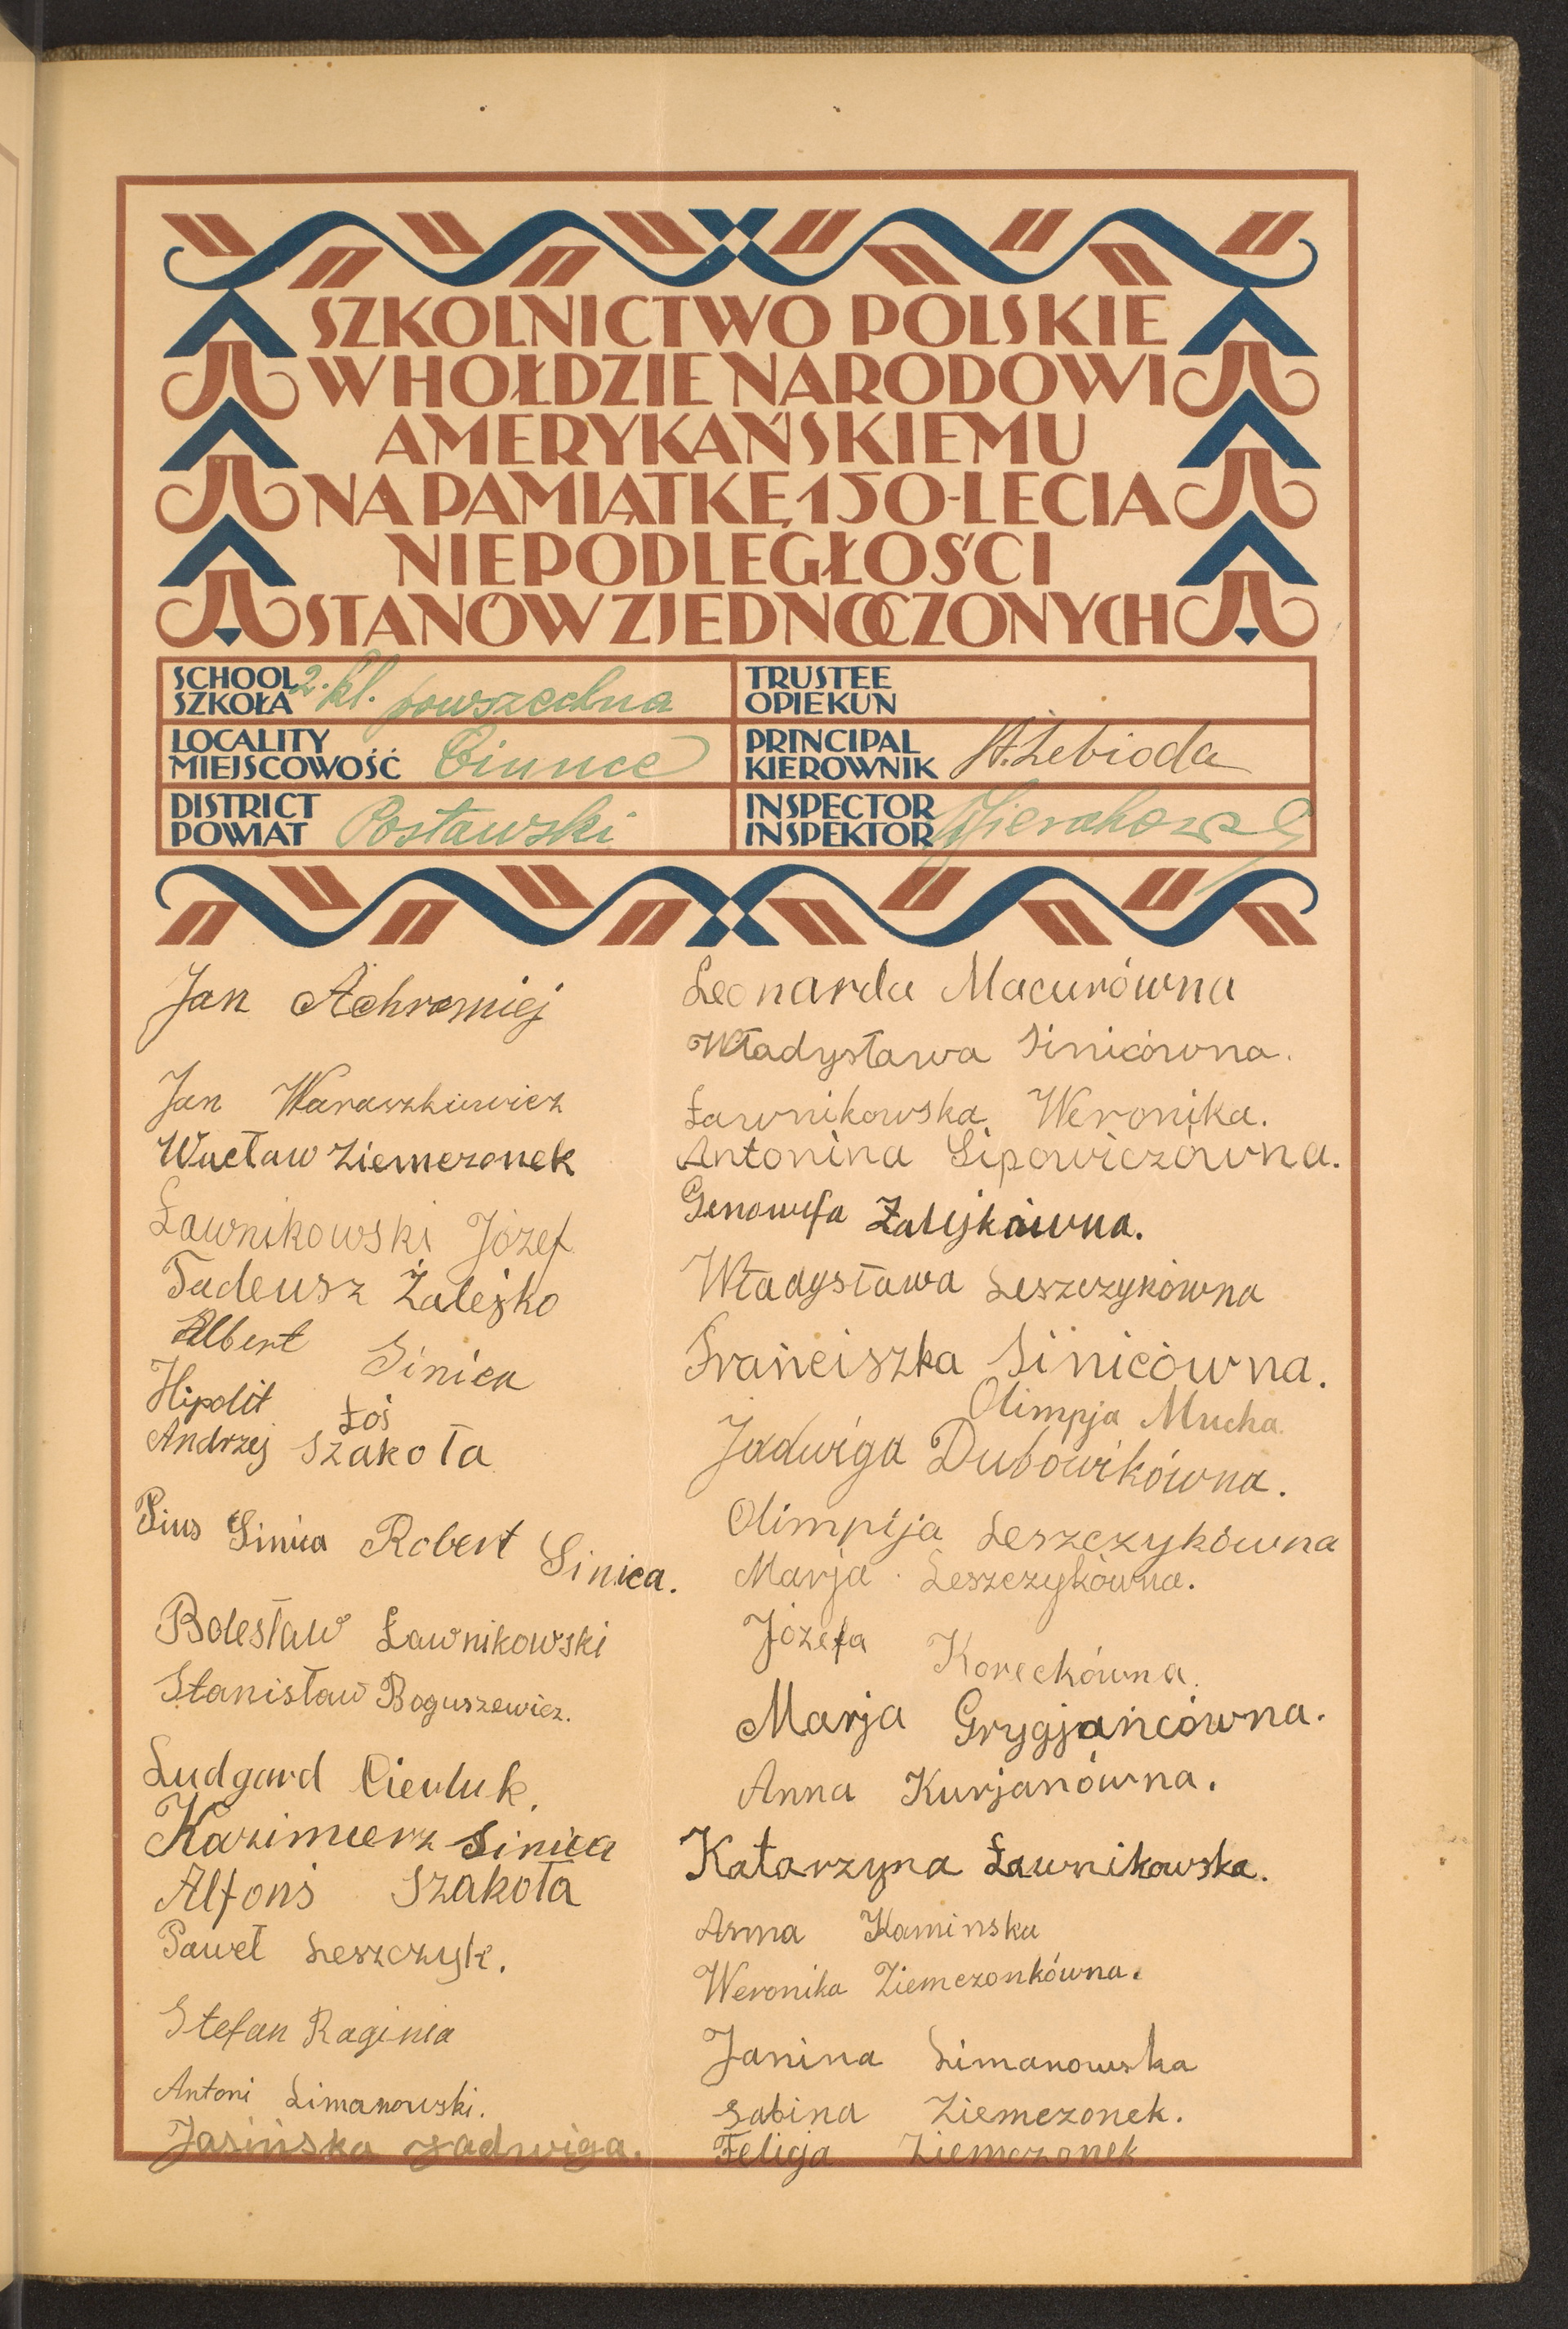 SZKOLNICTWO POLSKIE
W HOŁDZIE NARODOWI
AMERYKAŃSKIEMU
NA PAMIĄTKĘ 150-LECIA
NIEPODLEGŁOŚCI
STANÓW ZJEDNOCZONYCH
SCHOOL
SZKOŁA 2. kl. powszechna
LOCALITY
MIEJSCOWOŚĆ
DISTRICT
POWIAT Postawski
TRUSTEE
OPIEKUN
PRINCIPAL
KIEROWNIK Żebioda
INSPECTOR
INSPEKTOR
Jan Achromiej
Jan Waraszkiewicz
Wacław Ziemczonek
Ławnikowski Józef
Tadeusz Żalejko
Albert Sinica
Hipolit Łoś
Andrzej Szakoła
Pius Sinica Robert Sinica.
Bolesław Ławnikowski
Stanisław Boguszewicz.
Ludgard Cierluk.
Kazimierz Sinica
Alfons Szakoła
Paweł Leszczyk.
Stefan Raginia
Antoni Limanowski.
Jasińska Jadwiga.
Leonarda Macurówna
Władysława Sinicówna.
Ławnikowska Weronika.
Antonina Lipowiczówna.
Genowefa Żalejkówna.
Władysława Leszczykówna
Frańciszka Sinicówna.
Olimpja Mucha
Jadwiga Dubowikówna.
Olimpija Leszczykówna
Marja Leszczykówna.
Józefa Koreckówna.
Marja Grygjańcówna.
Anna Kurjanówna.
Katarzyna Ławnikowska.
Anna Kaminska
Weronika Ziemczonkówna.
Janina Limanowska
Sabina Ziemczonek.
Felicja Ziemczonek